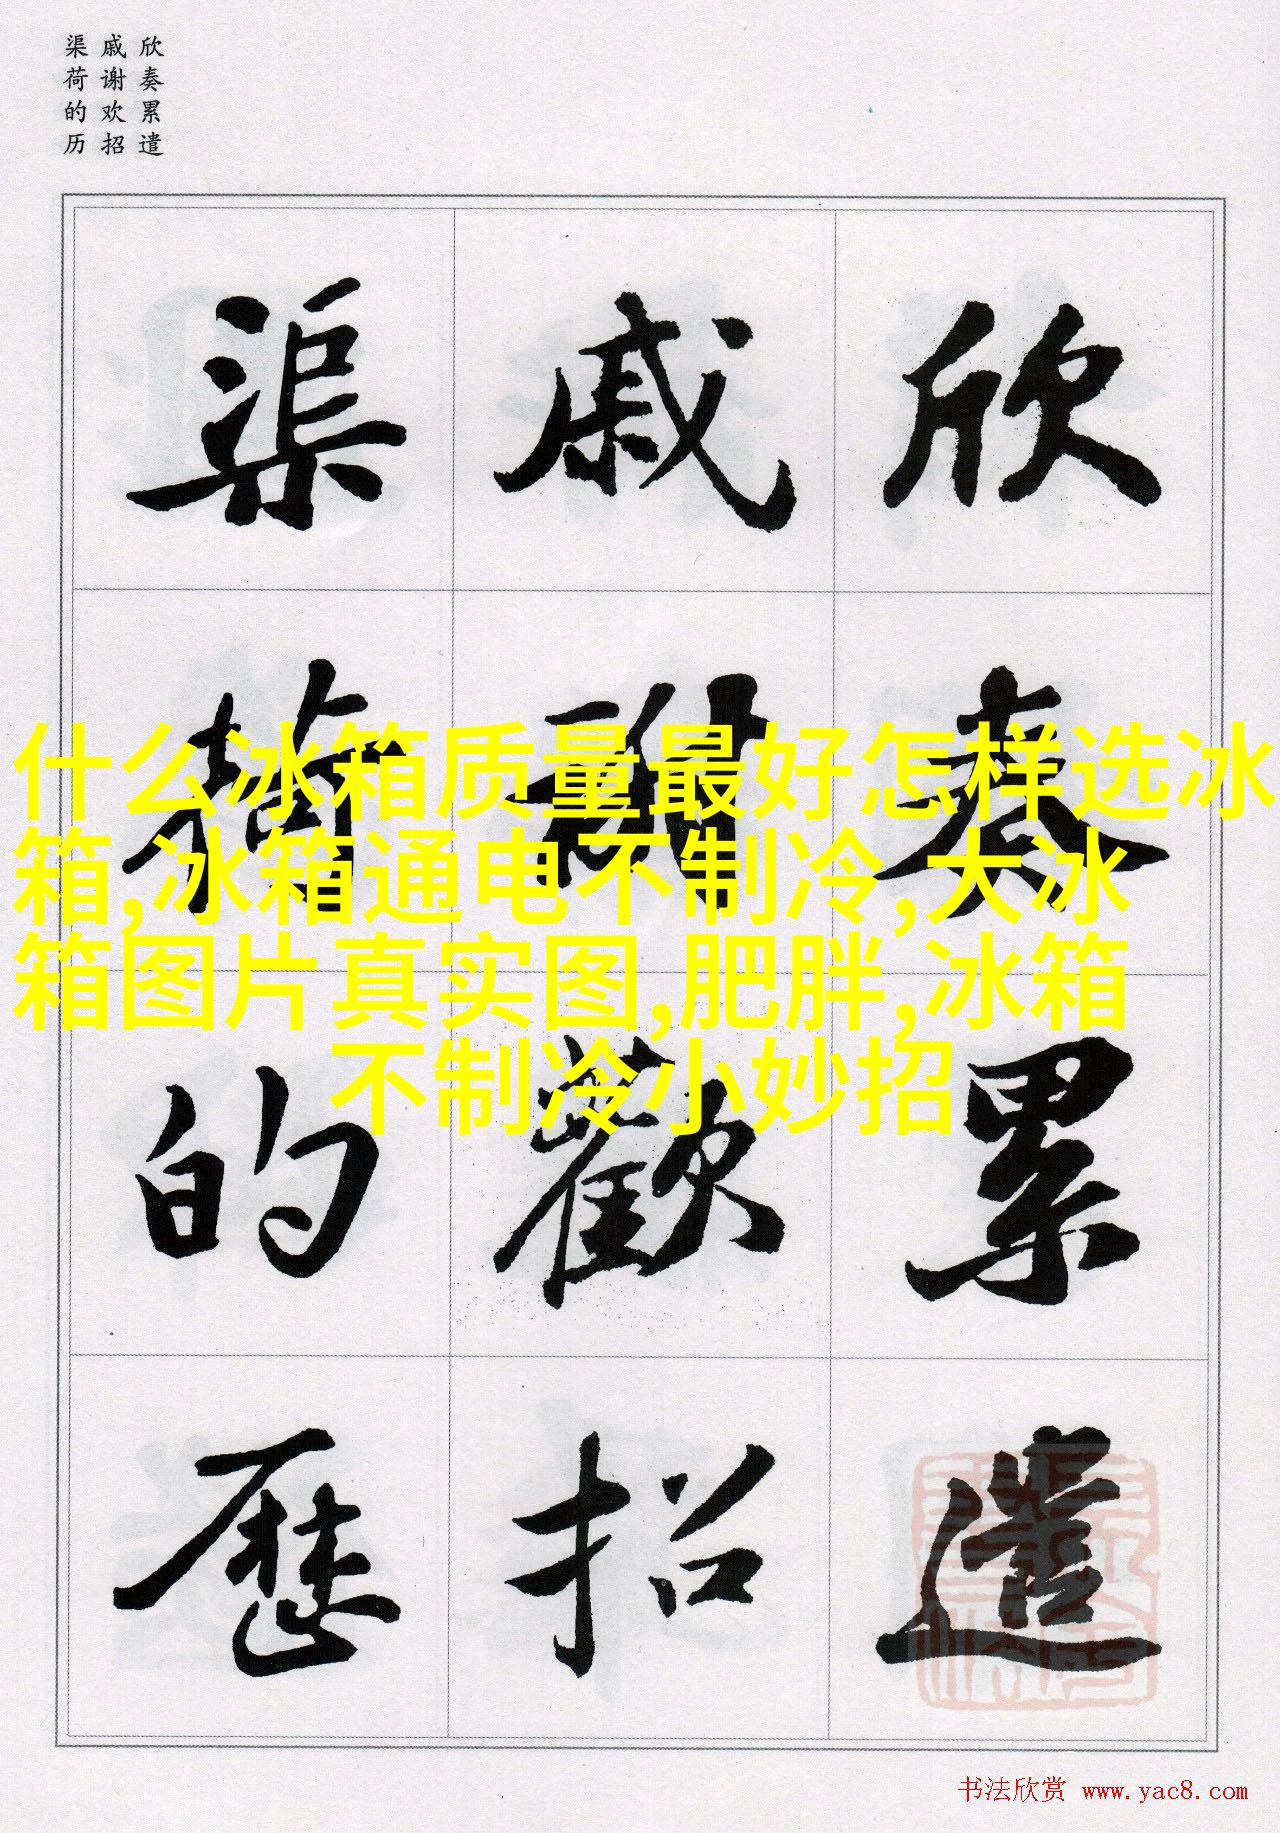 欣奏累遣
戚谢欢招
渠荷的历
欣奏累遣
戚謝歡招
渠荷的歷
什么冰箱质量最好怎样选冰
箱,冰箱通电不制冷,大冰
箱图片真实图,肥胖,冰箱
不制冷小妙招
书法欣赏 www.yac8.com